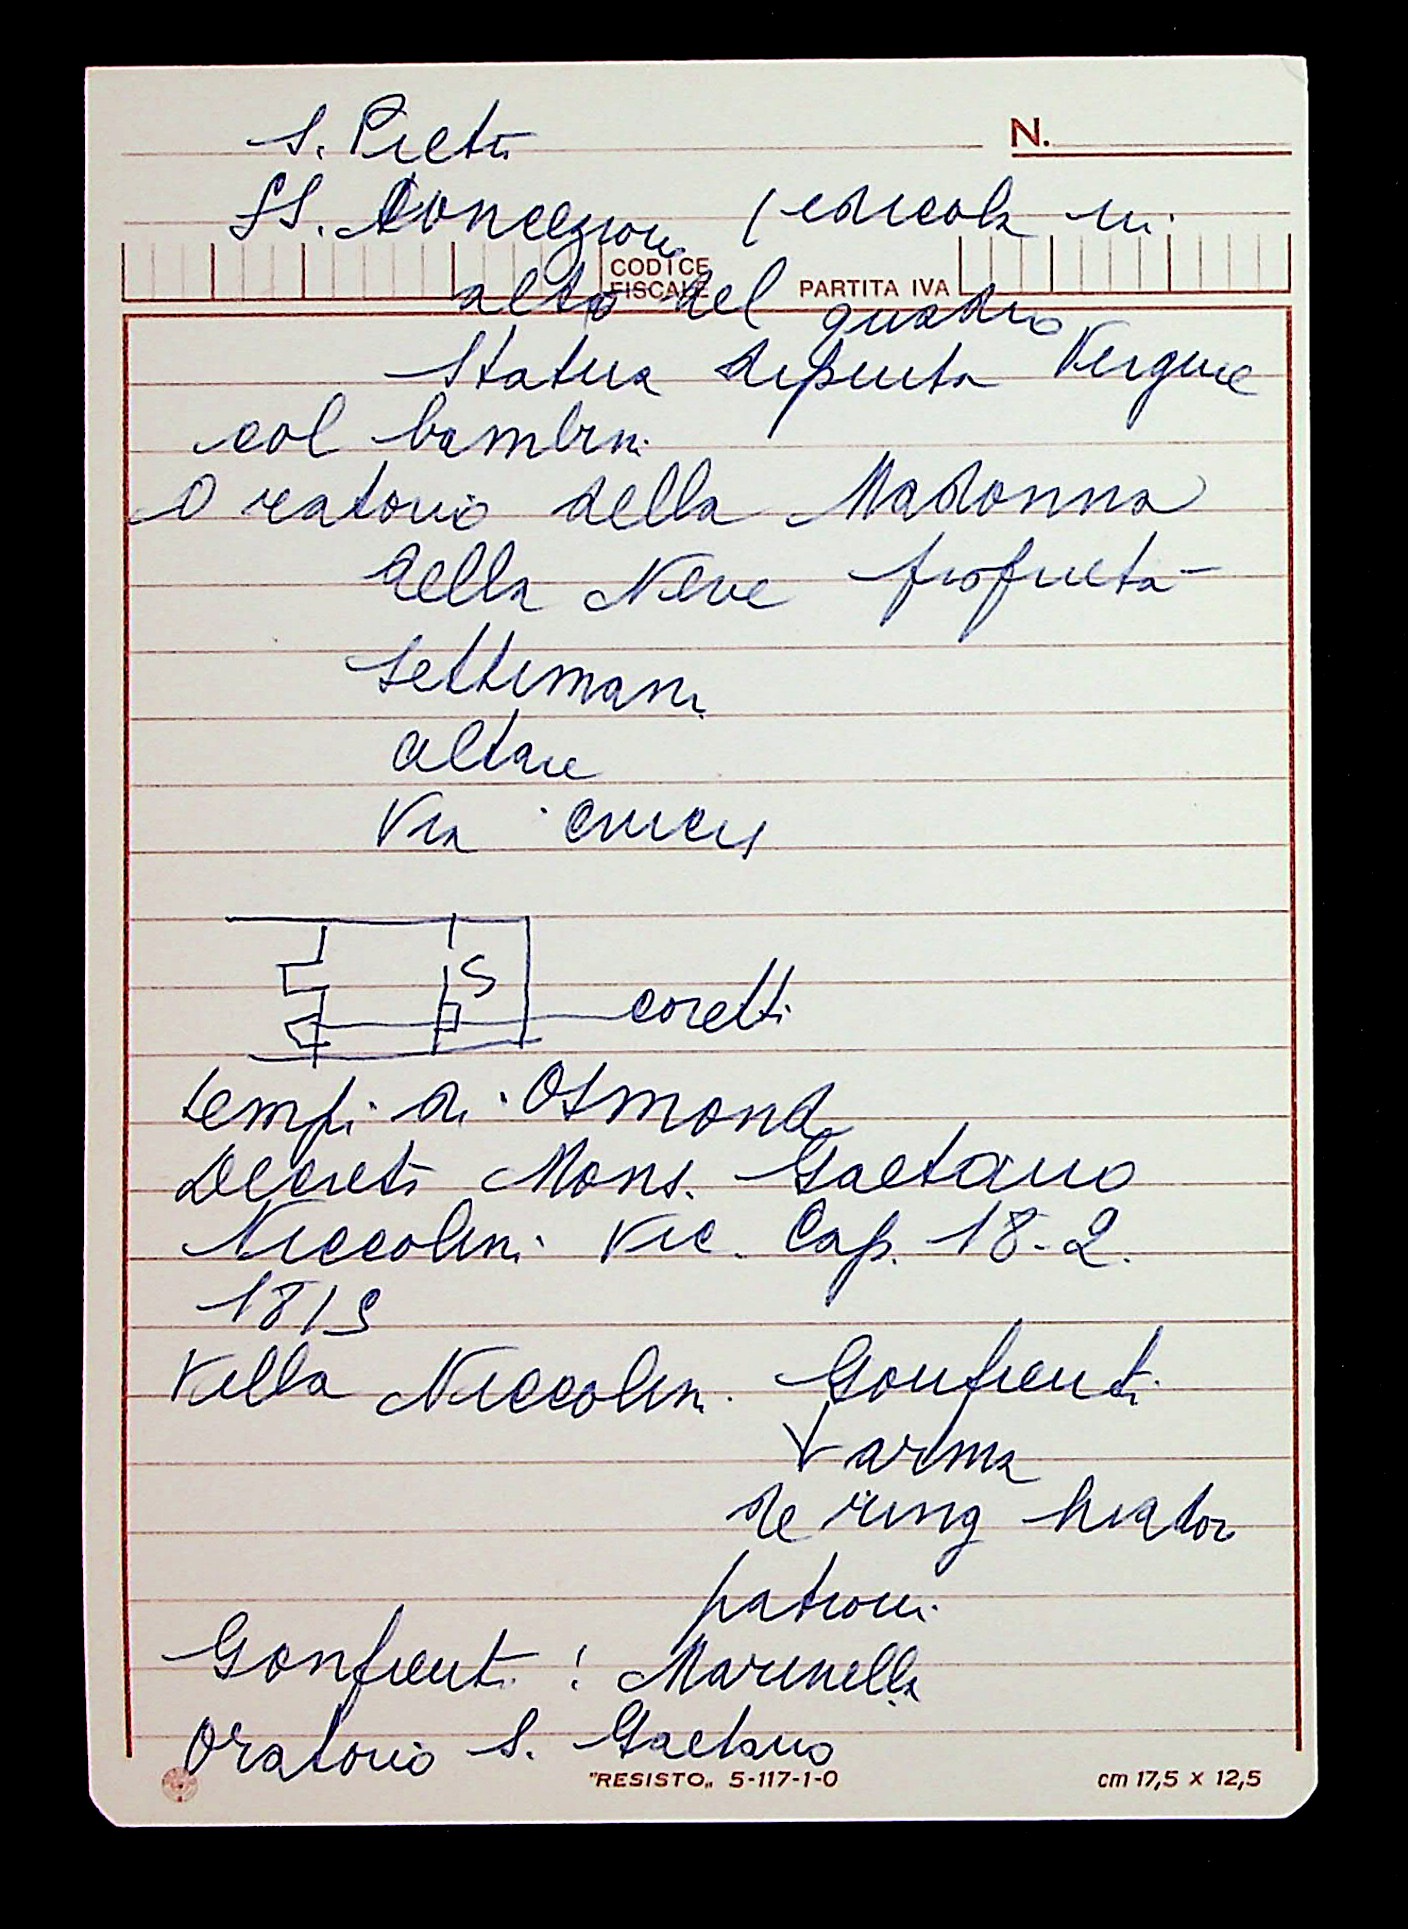 S. Pietro
N.
SS. Concezione (edicola in
CODICE FISCALE PARTITA IVA
alto del quadro
Statua dipinta Vergine
col bambin.
Oratorio della Madonna
della Neve proprietà
Settimani
altare
Via Crucis
S
coretti
tempi di Osmond
Decreti Mons. Gaetano
Niccolini Vic. Cap. 18-2.
1819
Villa Niccolini Gonfienti
arma
dering
patroni
Gonfienti: Marinella
Oratorio S. Gaetano
"RESISTO„ 5-117-1-0 cm 17,5 x 12,5